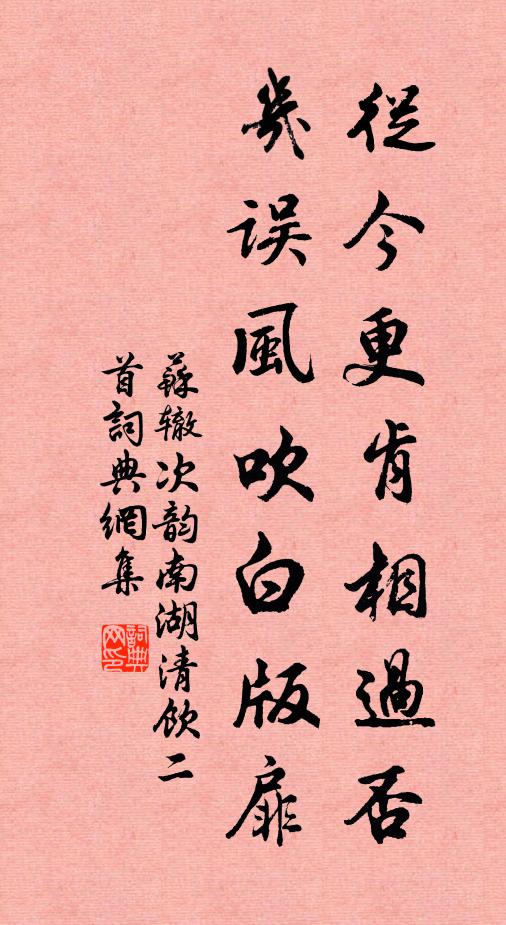 從今更肯相過否
幾误風吹白版扉
蘇辙次韵南湖清饮二
首詞典網集
詞典网印